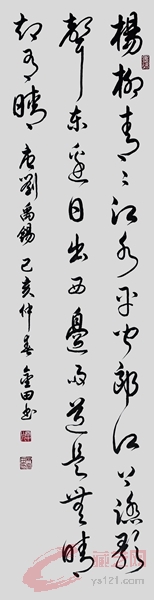 楊柳青〻江水平聞郎江上踏歌
聲東邊日出西邊雨道是無晴
却有晴 唐劉禹錫 己亥仲春 金田书
ys121.com